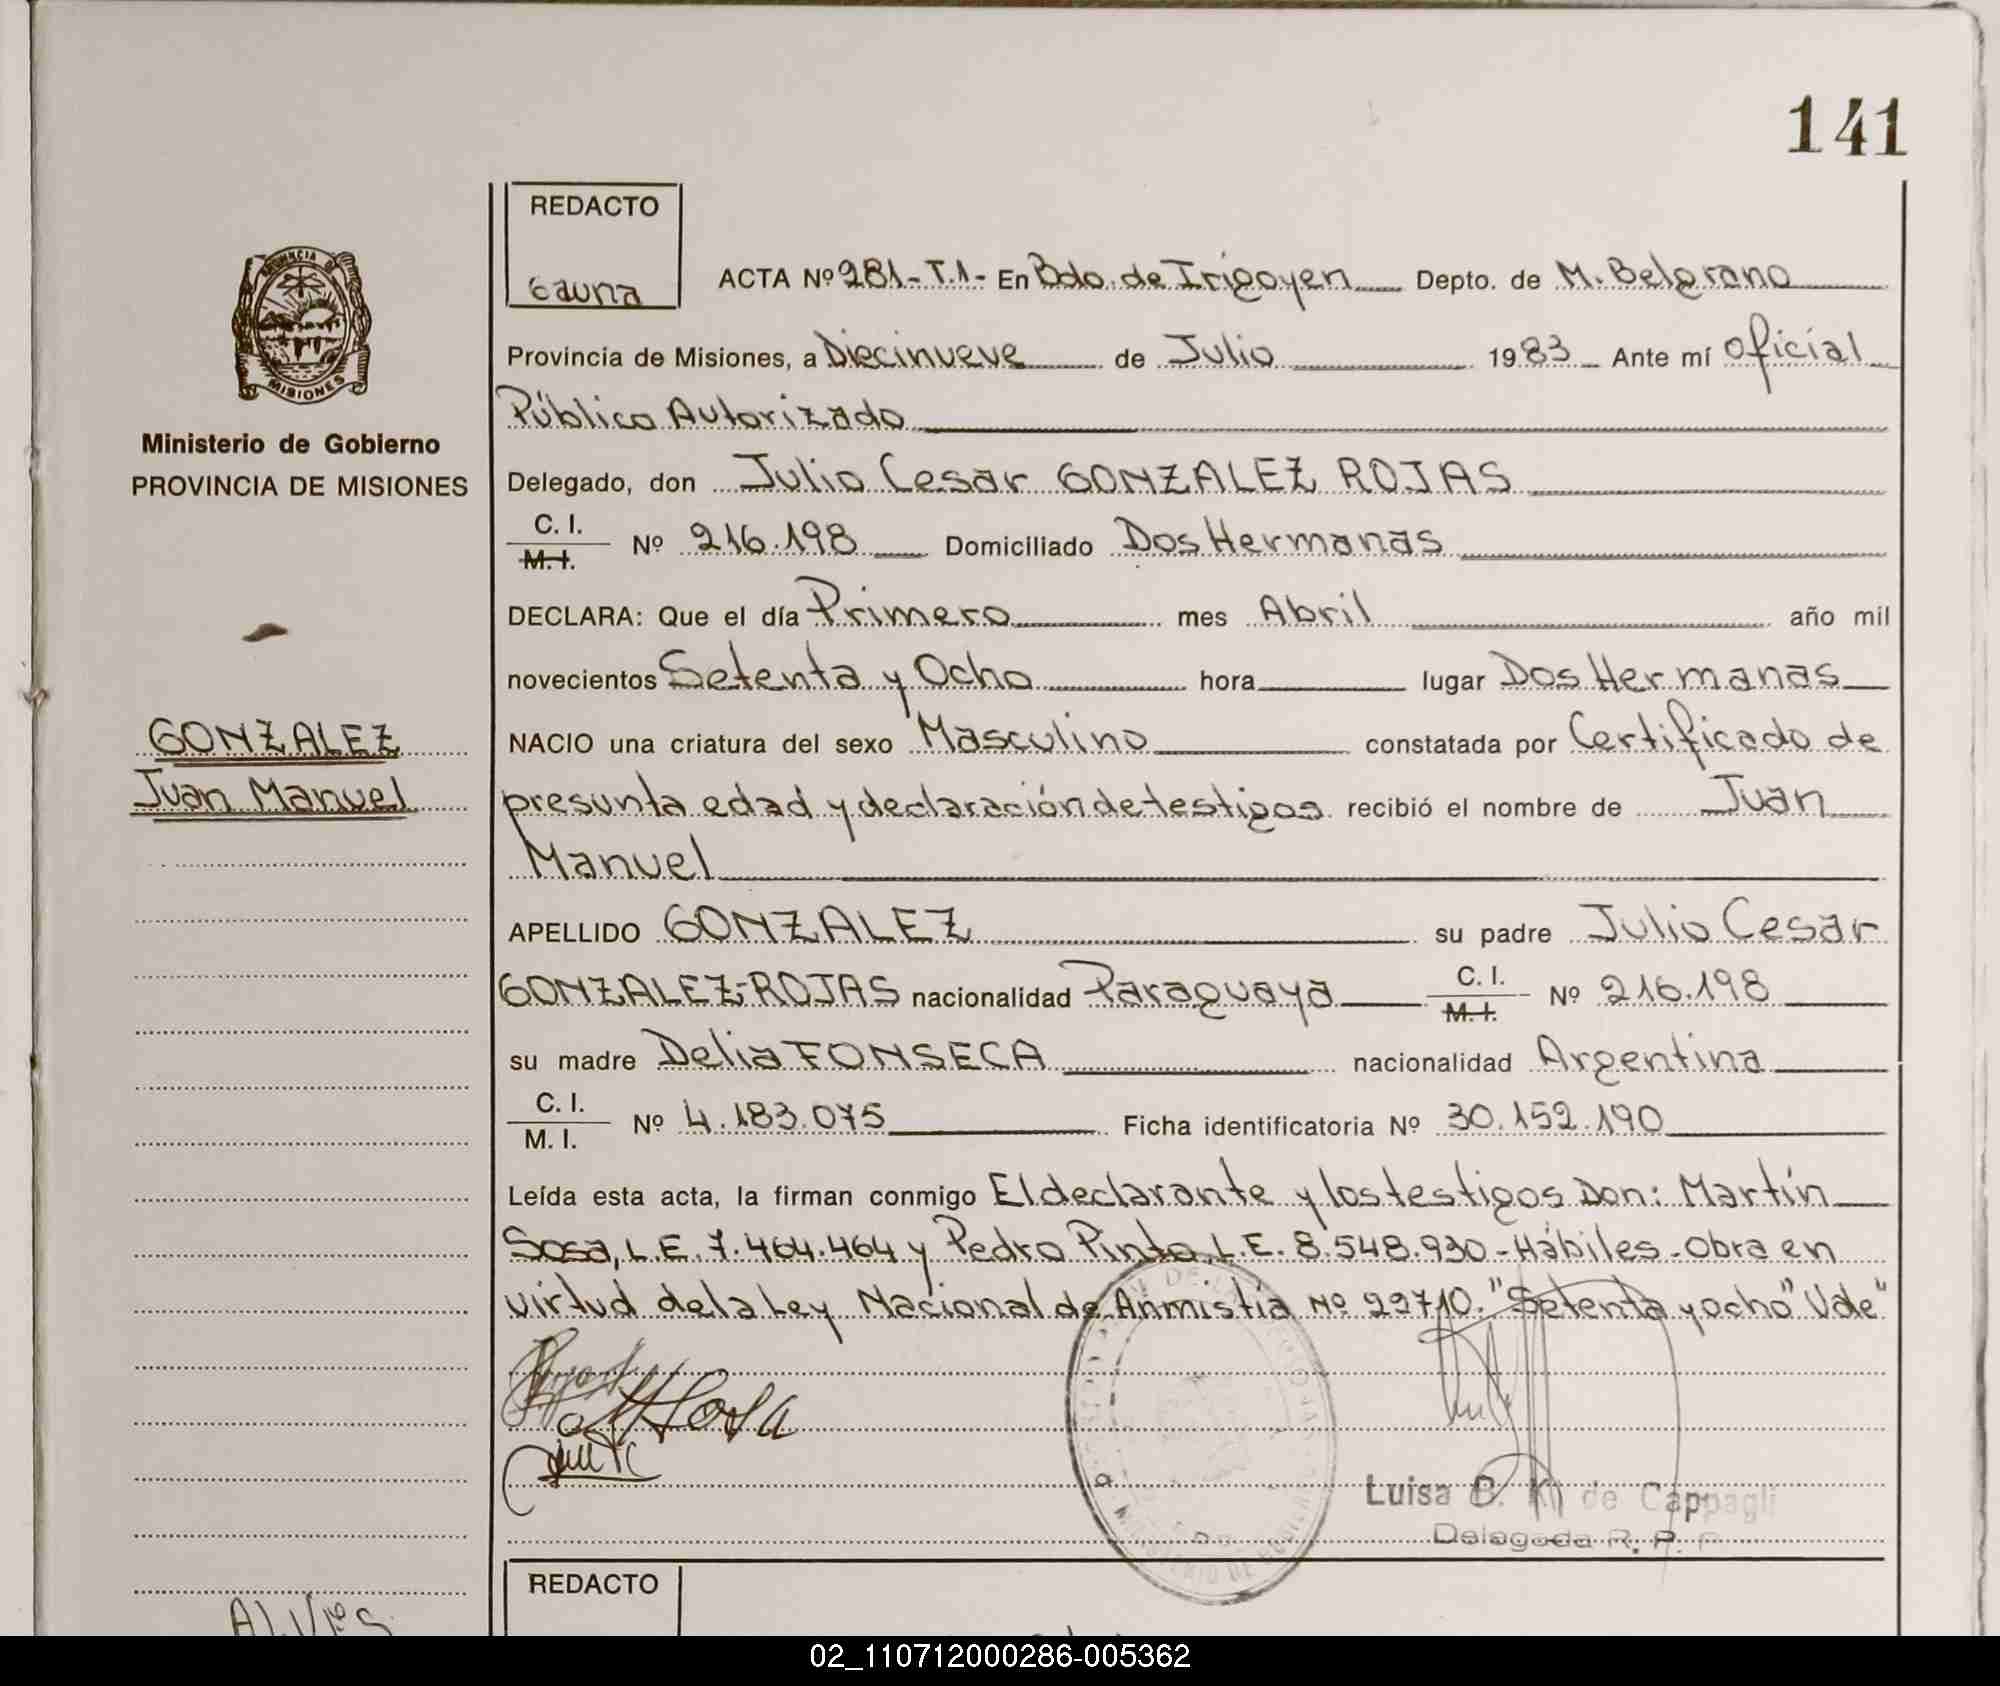 141
REDACTO
Gauna
ACTA Nº 281-T.1- En Bdo. de Irigoyen Depto. de M. Belgrano
Provincia de Misiones, a Diecinueve de Julio 1983 Ante mí Oficial
Público Autorizado
Ministerio de Gobierno
PROVINCIA DE MISIONES
Delegado, don Julio Cesar GONZALEZ ROJAS
C. I.
M. I. Nº 216.198 Domiciliado Dos Hermanas
DECLARA: Que el día Primero mes Abril año mil
novecientos Setenta y Ocho hora lugar Dos Hermanas
NACIO una criatura del sexo Masculino constatada por Certificado de
GONZALEZ
Juan Manuel
presunta edad y declaración de testigos recibió el nombre de Juan
Manuel
APELLIDO GONZALEZ su padre Julio Cesar
GONZALEZ-ROJAS nacionalidad Paraguaya C. I. M. I. Nº 216.198
su madre Delia FONSECA nacionalidad Argentina
C. I.
M. I. Nº 4.183.075 Ficha identificatoria Nº 30.152.190
Leída esta acta, la firman conmigo El declarante y los testigos Don: Martín
Sosa, L.E. 7.464.464 y Pedro Pinto, L.E. 8.548.930-Hábiles-Obra en
virtud de la Ley Nacional de Anmistia Nº 22710. "Setenta y ocho" Vale"
MSosa
Luisa B. K. de Cappagli
Delegada R. P.
REDACTO
02_110712000286-005362